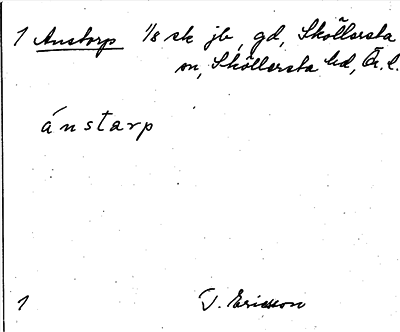 1 Anstorp 1/8 sk jb, gd, Sköllersta
sn, Sköllersta hd, Ör. l.
ánstarp
1 J. Ericsson